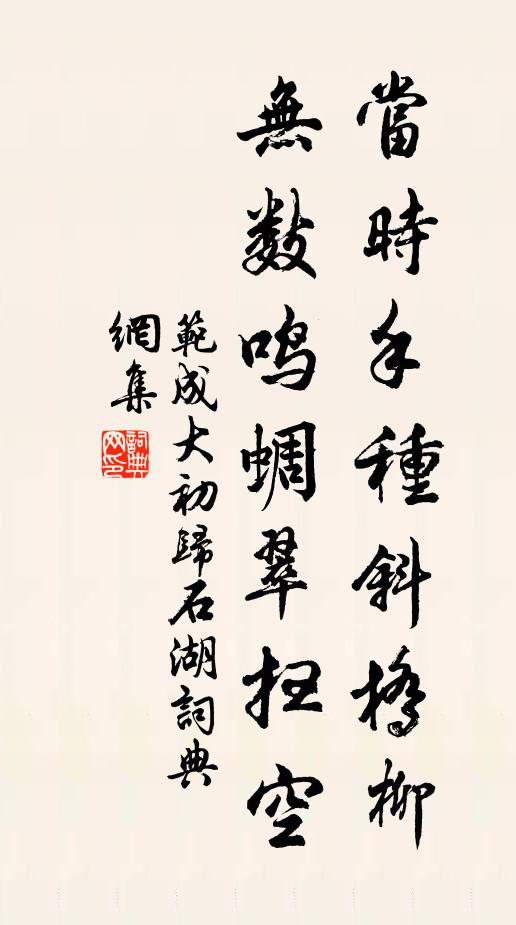 當時手種斜橋柳
無數鳴蜩翠扫空
範成大初歸石湖詞典
網集
詞典
网印